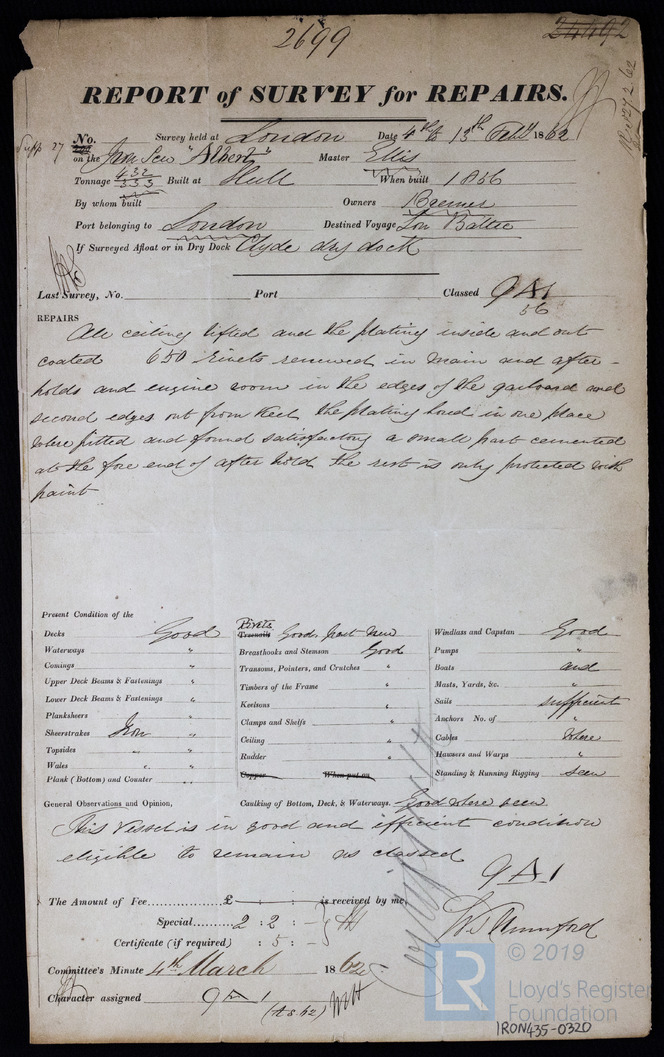 2699
REPORT of SURVEY for REPAIRS.
No. Survey held at London Date 4th to 13th Feby 1862
on the Iron Scw "Albert" Master Ellis
Tonnage 432 333 Built at Hull When built 1856
By whom built Owners Bremer
Port belonging to London Destined Voyage Lon Baltic
If Surveyed Afloat or in Dry Dock Clyde dry dock
Last Survey, No. Port Classed 9 A1
56
REPAIRS
All ceiling lifted and the plating inside and out
coated 650 rivets renewed in main and after-
holds and engine room in the edges of the garboard and
second edges out from keel the plating bored in one place
where fitted and found satisfactory a small part cemented
at the fore end of after hold the rest is only protected with
paint
Present Condition of the
Decks Good
Waterways "
Comings "
Upper Deck Beams & Fastenings "
Lower Deck Beams & Fastenings "
Planksheers "
Sheerstrakes Iron "
Topsides "
Wales " "
Plank (Bottom) and Counter "
Rivets
Treenails Good, part New
Breasthooks and Stemson Good
Transoms, Pointers, and Crutches "
Timbers of the Frame "
Keelsons "
Clamps and Shelfs "
Ceiling "
Rudder "
Copper When put on
Windlass and Capstan Good
Pumps "
Boats and
Masts, Yards, &c. "
Sails sufficient
Anchors No. of "
Cables where
Hawsers and Warps "
Standing & Running Rigging seen
General Observations and Opinion, Caulking of Bottom, Deck, & Waterways. Good where seen
This Vessel is in good and efficient condition
eligible to remain as classed
9 A1
The Amount of Fee £ : : is received by me,
Special 2 : 2 : -
Certificate (if required) : 5 : -
Committee's Minute 4th March 1862
Character assigned 9 A 1
(A.s.62)
© 2019
LR
Lloyd's Register
Foundation
IRON435-0320